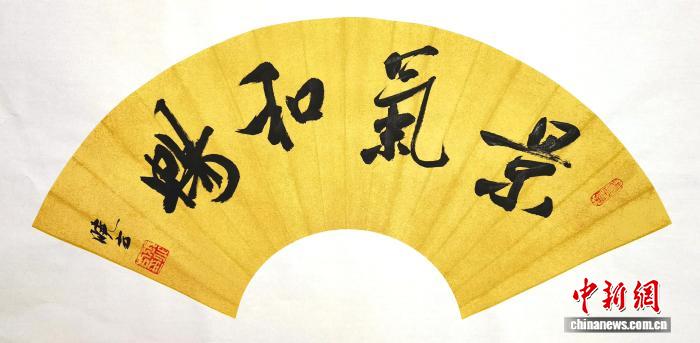 景氣和暢
中新網
chinanews.com.cn